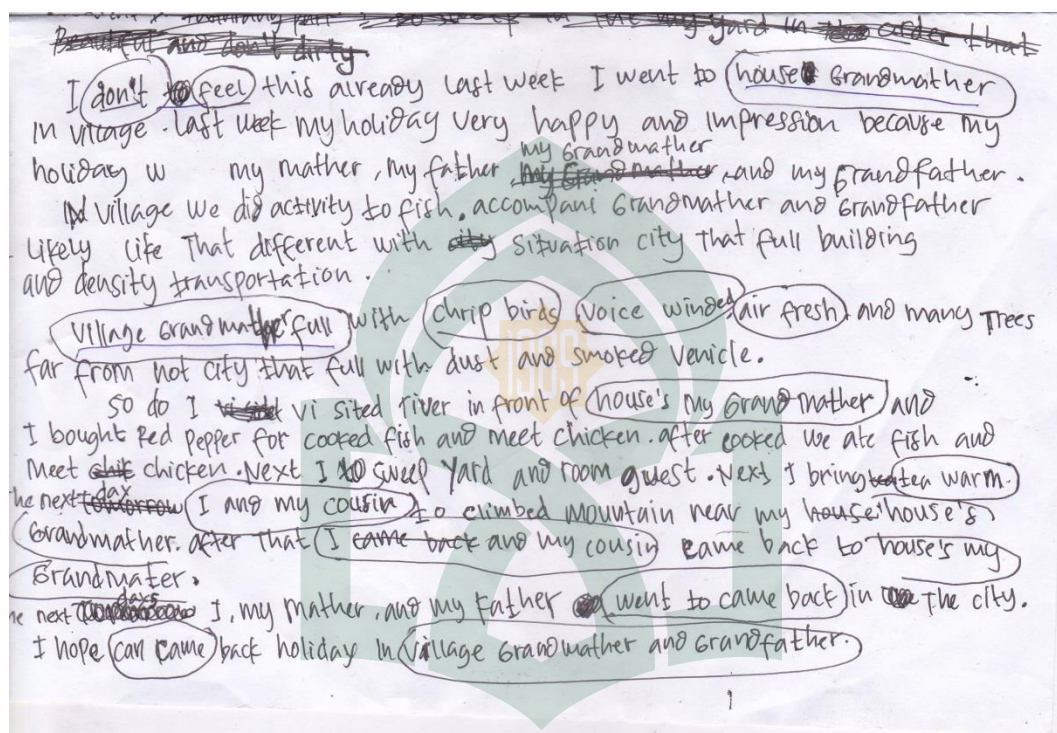 my yard in order that
Beautiful and don't dirty
I don't to feel this already last week I went to house Grandmather
in village. last week my holiday very happy and impression because my
my Grandmather
holiday w my mather, my father, my Grandmather, and my grandfather.
In village we did activity to fish. accompani Grandmather and Grandfather
Likely life That different with city situation city That full building
and density transportation.
Village Grandmather full with chrip birds, voice winded, air fresh, and many Trees
far from hot city that full with dust and smoked vehicle.
So do I visited river in front of house's my Grandmather and
I bought Red pepper for cooked fish and meet chicken. after cooked we ate fish and
meet chicken. Next I to sweep yard and room guest. Next I bring tea warm.
he next tomorrow day I and my cousin to climbed mountain near my house house's
Grandmather. after That I came back and my cousin came back to house's my
Grandmater.
he next days I, my mather, and my Father went to came back in The city.
I hope can came back holiday in village Grandmather and Grandfather.
1